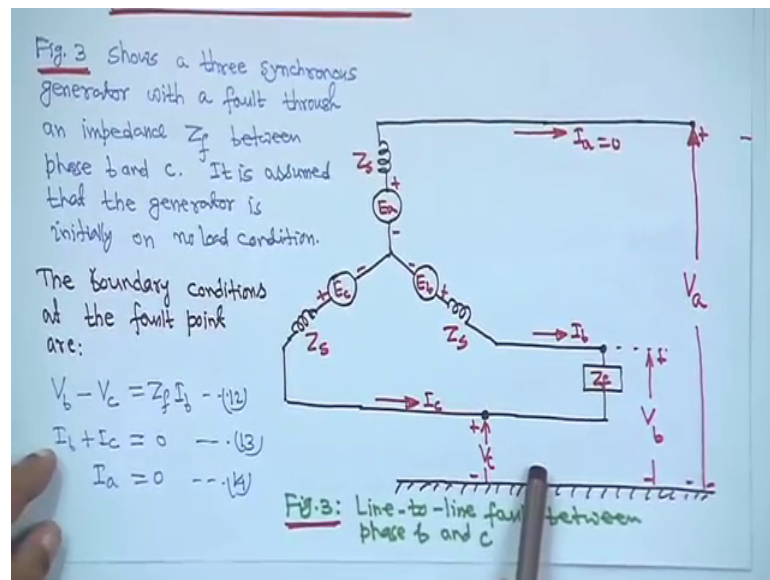 Fig. 3 shows a three synchronous
generator with a fault through
an impedance Zf between
phase b and c. It is assumed
that the generator is
initially on no load condition.
The boundary conditions
at the fault point
are:
Vb - Vc = Zf Ib --(12)
Ib + Ic = 0 --.(13)
Ia = 0 --.(14)
Ia = 0
Zs
+
Ea
-
+
-
Va
-
Ec
+
-
Eb
+
Zs
Zs
Ib
+
Zf
Ic
+
Vc
-
Vb
-
-
Fig.3: Line-to-line fault between
phase b and c